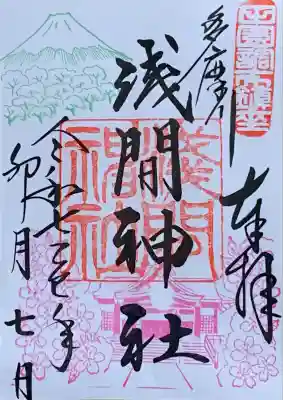 田園調布鎮座
奉拝
多摩川
浅間神社
淺間
神社
令和七乙巳年
卯月 七日